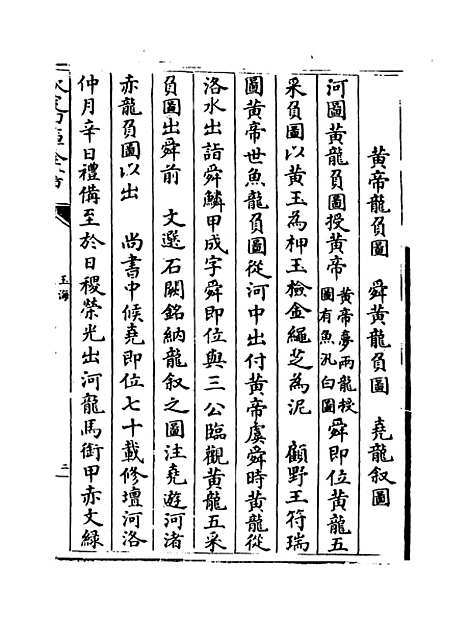 黃帝龍負圖 舜黃龍負圖 堯龍叙圖
河圖黃龍負圖授黃帝黃帝夢兩龍授圖有魚汎白圖舜即位黃龍五
采負圖以黃玉為柙玉檢金繩芝為泥 顧野王符瑞
圖黃帝世魚龍負圖從河中出付黃帝虞舜時黃龍從
洛水出詣舜麟甲成字舜即位與三公臨觀黃龍五采
負圖出舜前 文選石闕銘納龍叙之圖注堯遊河渚
赤龍負圖以出 尚書中候堯即位七十載修壇河洛
仲月辛日禮備至於日稷榮光出河龍馬銜甲赤文緑
玉海
二